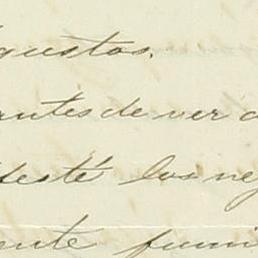 gustos.
antes de ver a
testé los neg
ente fumi